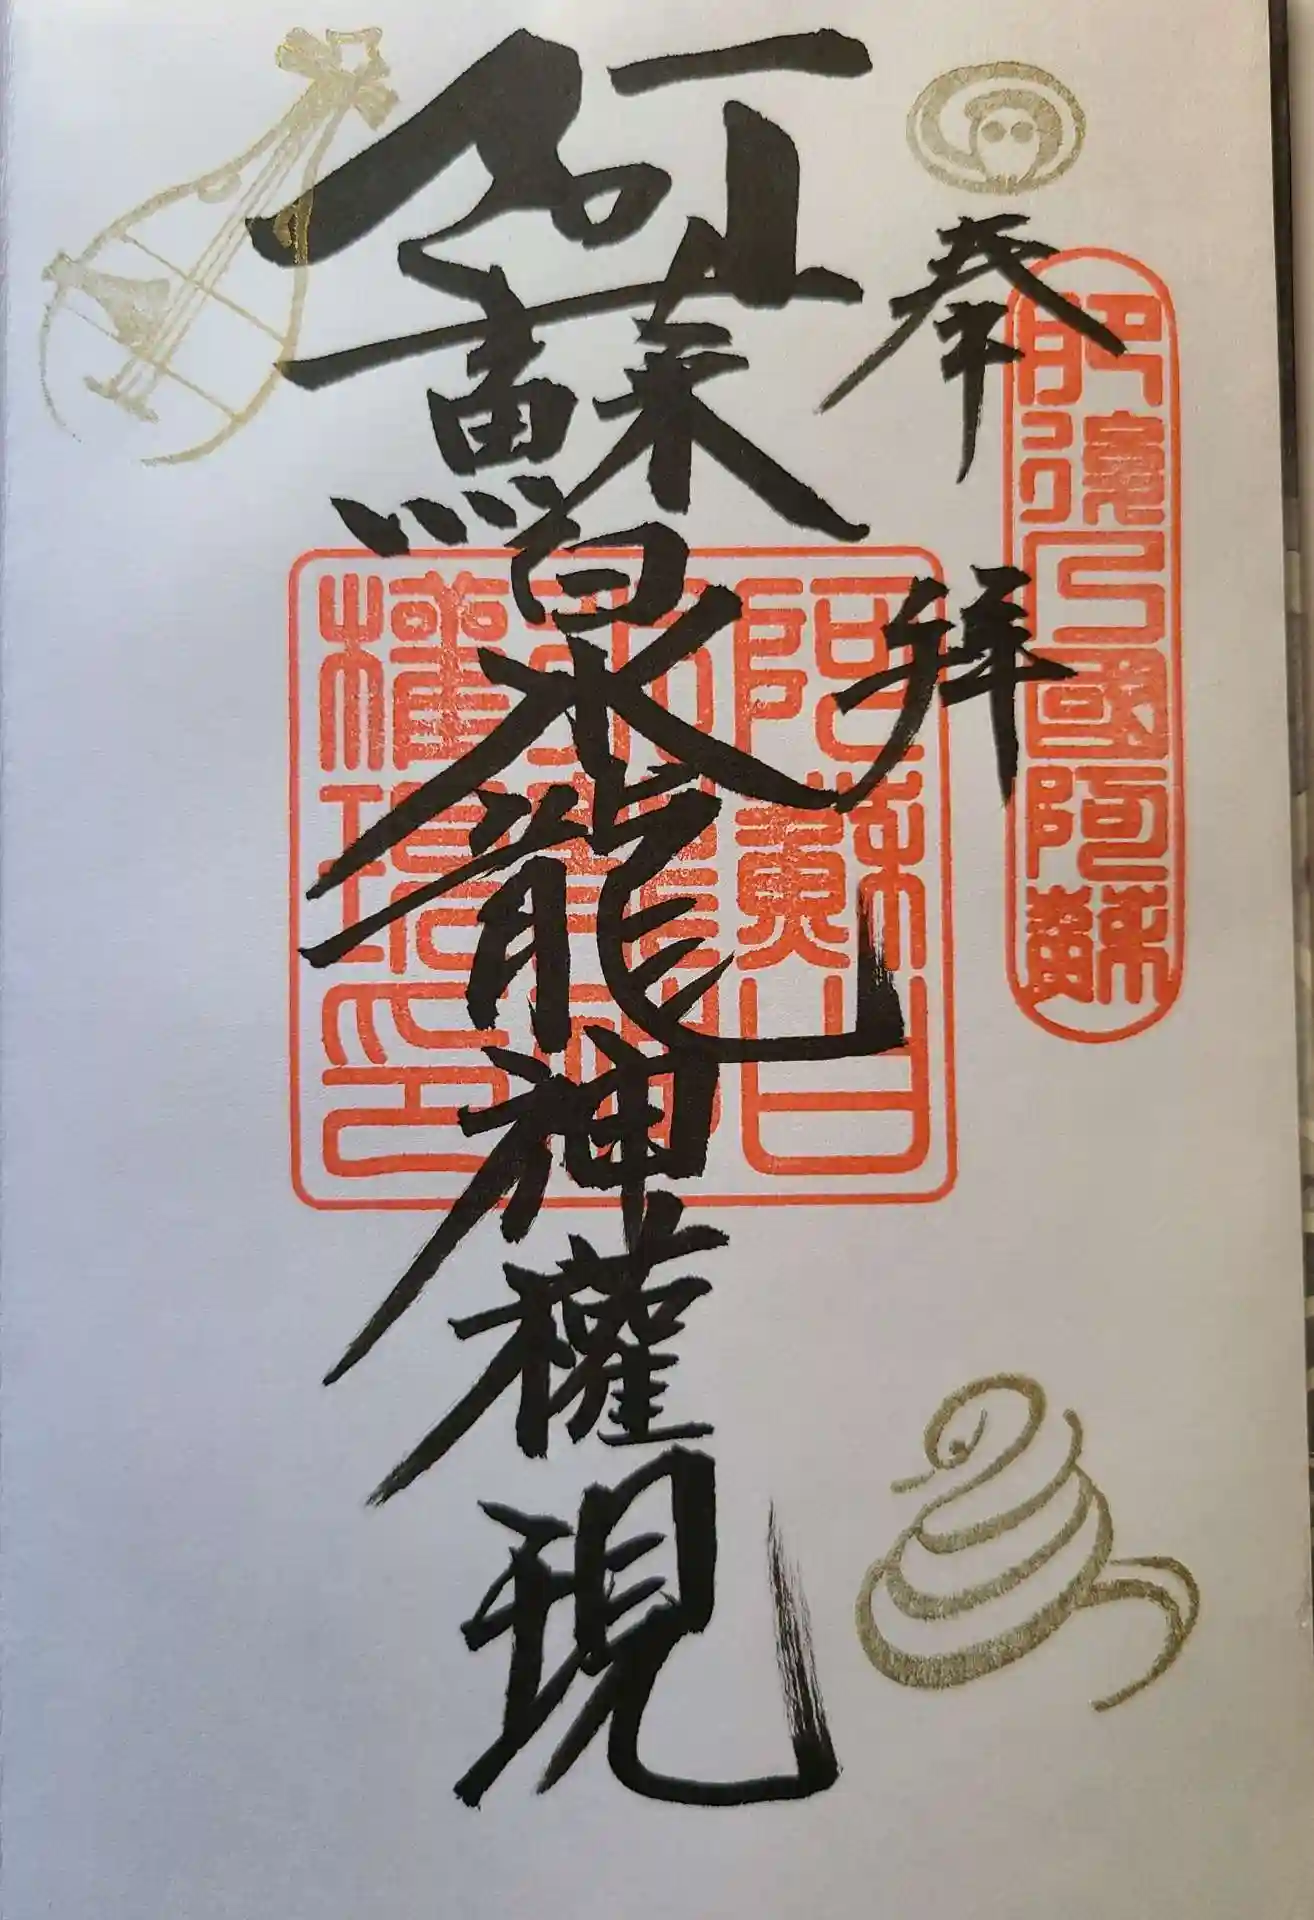 奉拝
肥後乃國阿蘇
阿蘇白水龍神權現
阿蘇山
水龍神
權現印